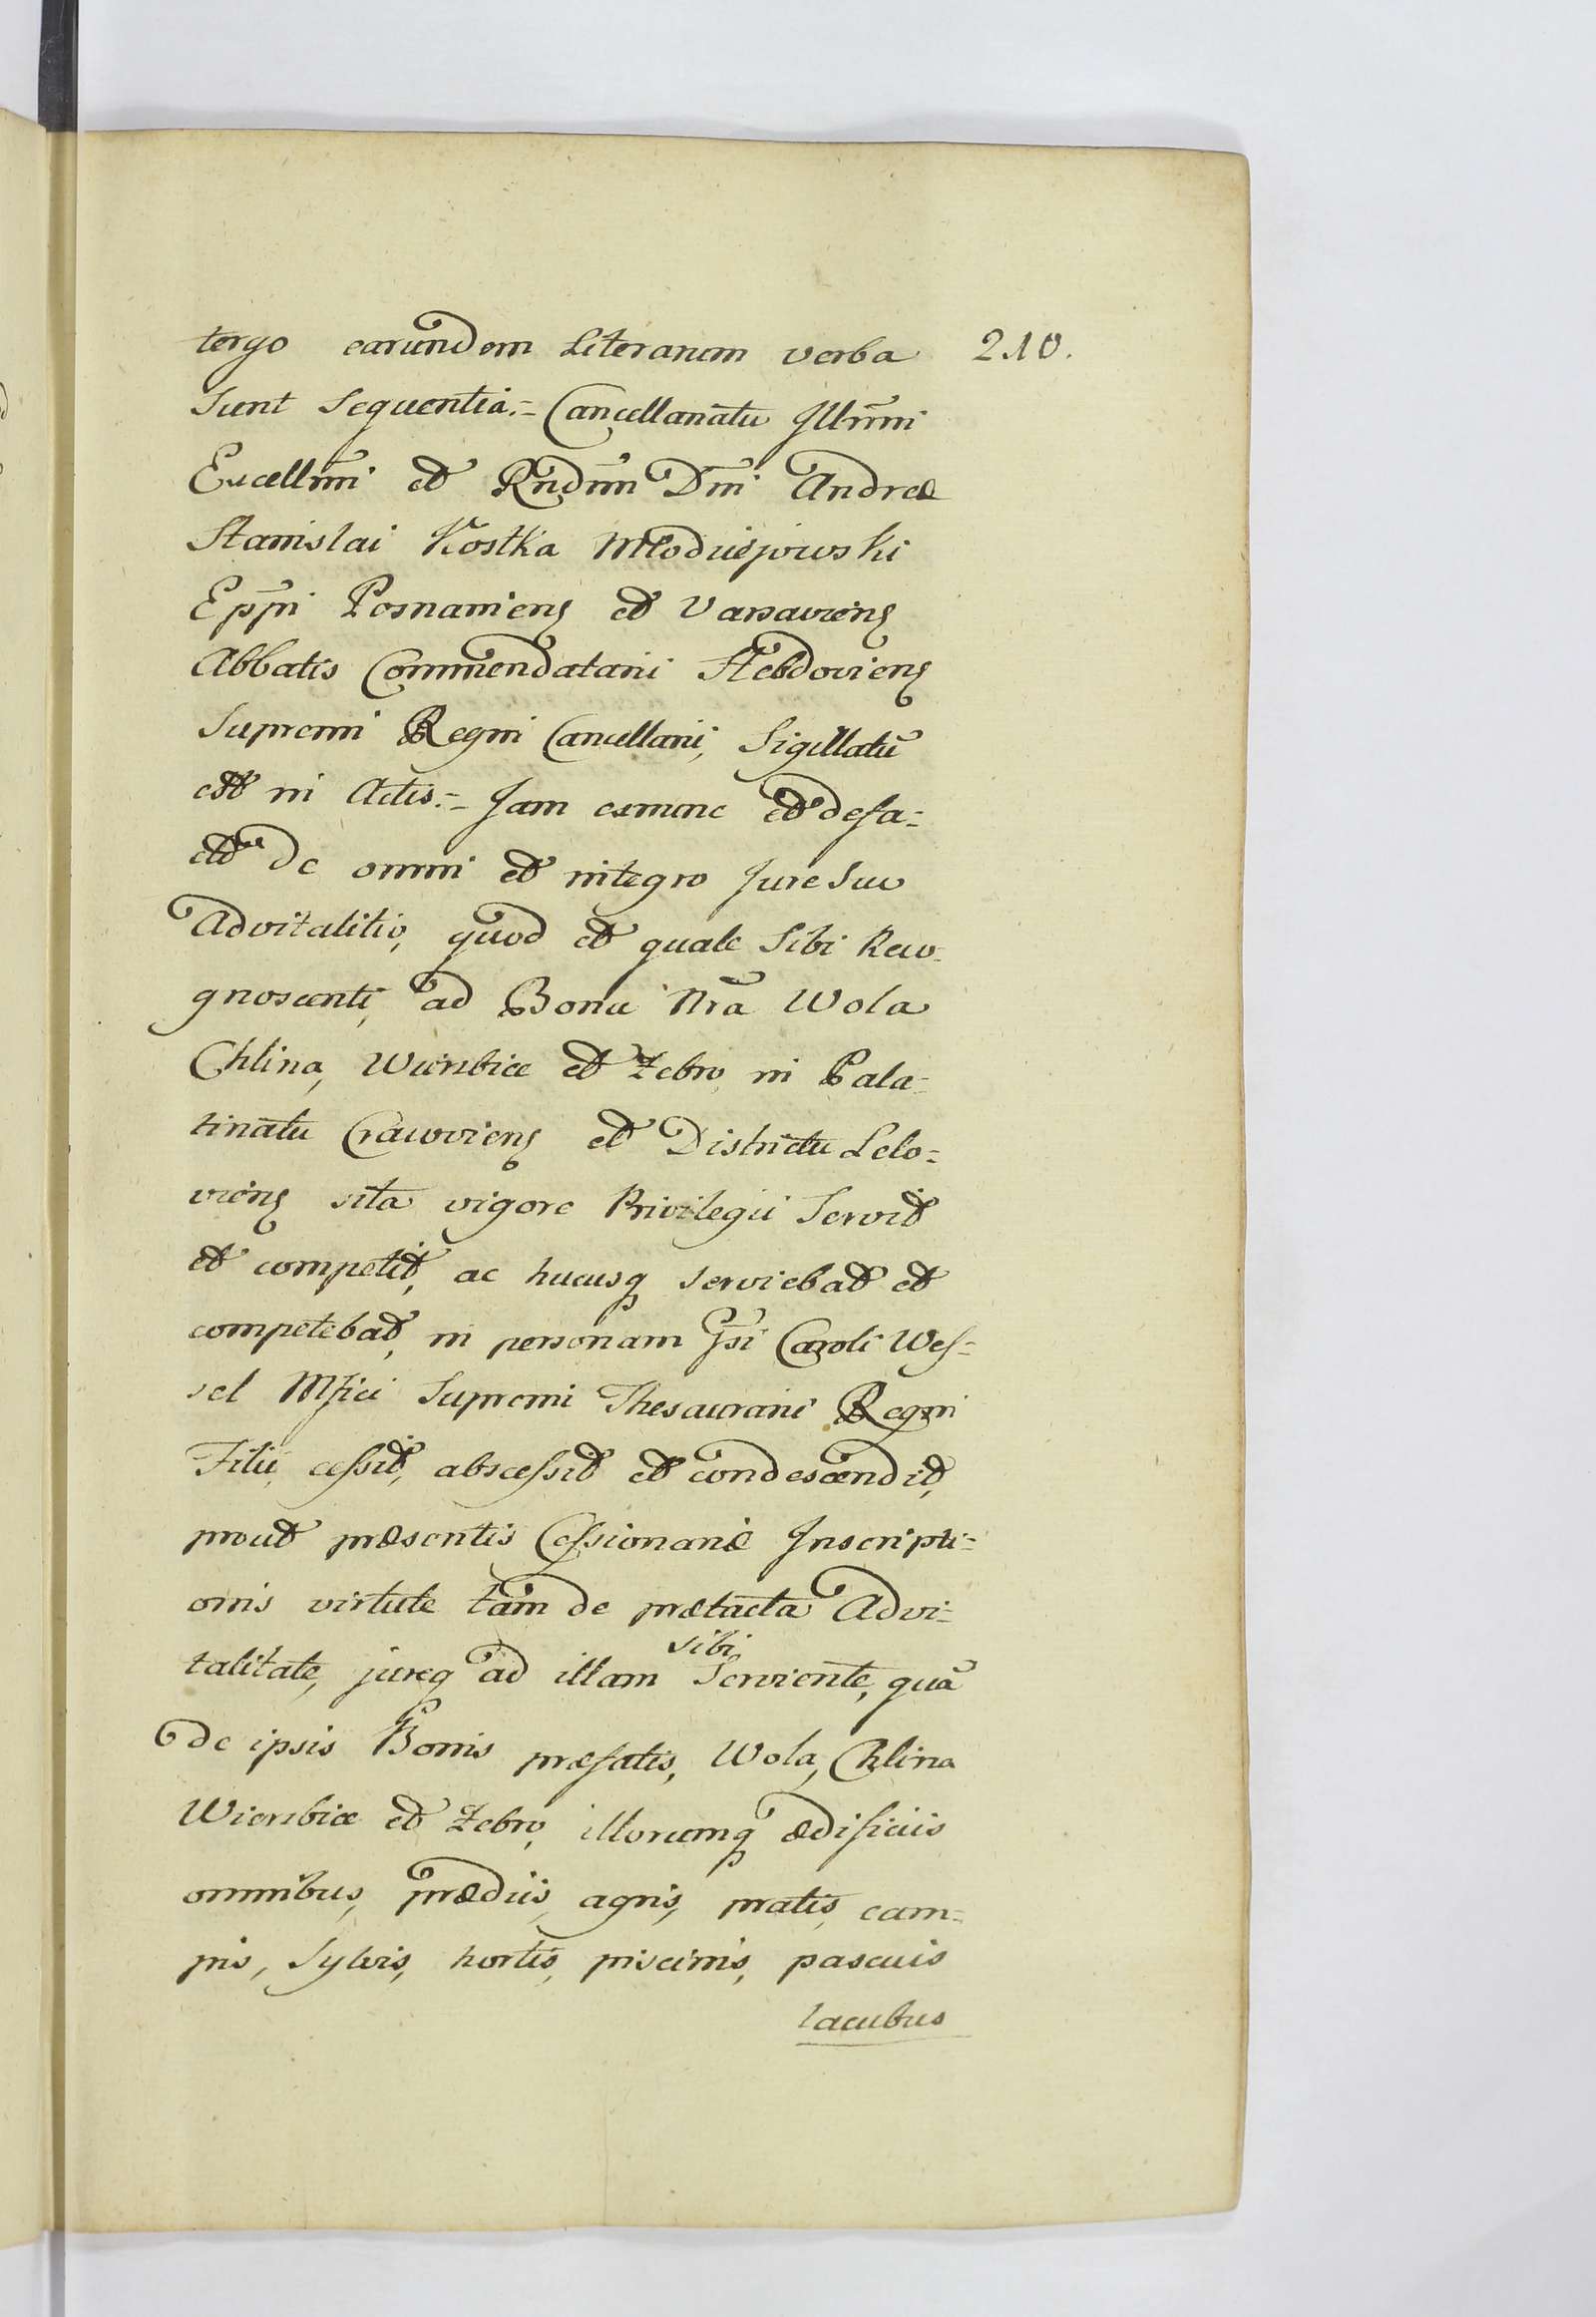 tergo earundem Literarum verba 210.
Sunt Sequentia.= Cancellariatu Jllr̃mi
Excellm̃i et Rñdm̃i Dm̃i Andreæ
Stanislai Kostka Młodziejowski
Epp̃i Posnaniens et Varsaviens
Abbatis Commendatarii Hebdoviens
Supremi Regni Cancellarii, Sigillatũ
est in Actis.= Jam exnunc et de fa=
cto de omni et integro Jure Suo
Advitalitio, quod et quale Sibi Reco=
gnoscenti, ad Bona Nr̃a Wola
Chlina, Wierzbica et Zebro, in Pala=
tinatu Cracoviens et Districtu Lelo=
viens sita vigore Privilegii Servit
et competit, ac hucusq serviebat et
competebat, in personam Gsi Caroli Wes=
sel Mfici Supremi Thesaurarii Regni
Filii, cessit, abscessit et condescendit,
prout præsentis Cessionariæ Inscripti=
onis virtute tam de prætacta Advi=
talitate, jureq ad illam sibi Serviente, quã
de ipsis Bonis præfatis, Wola, Chlina
Wierzbica et Zebro, illorumq ædificiis
omnibus, prædiis, agris, pratis, cam=
pis, Sylvis, hortis, piscinis, pascuis
lacubus